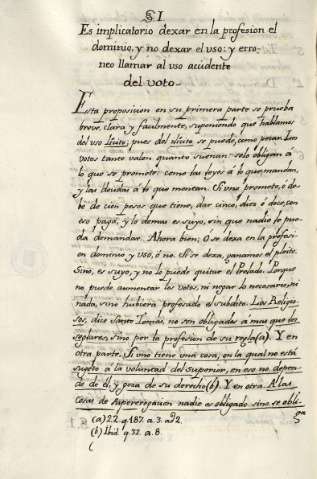 § I.
Es implicatorio dexar en la profesion el
dominio, y no dexar el uso: y erro-
neo llamar al uso accidente
del voto.
Esta proposicion en su primera parte se prueba
breve, clara y facilmente, suponiendo que hablamos
del uso licito; pues del ilicito se puede, como pecar. Los
votos tanto valen quanto suenan: solo obligan á
lo que se promete: como las leyes á lo que mandan,
y las deudas á lo que montan. Si uno promete, ó de-
be de cien pesos que tiene, dar cinco, diez ó doce, con
eso paga, y lo demas es suyo, sin que nadie lo pue-
da demandar. Ahora bien; ó se dexa en la profesi-
on dominio y uso, ó no. Si se dexa, ganamos el pleito.
Sino, es suyo, y no lo puede quitar el Prelado. Porque
no puede aumentar los votos, ni negar lo necesario, ni
nada, sino hubiera profesado el subdito. Los Religio-
sos, dice Santo Tomas, no son obligados á mas que los
seglares, sino por la profesion de su regla(a). Y en
otra parte. Si uno tiene una cosa, en la qual no está
sujeto a la voluntad del superior, en eso no depen-
de de él, y goza de su derecho(b). Y en otra. A las
cosas de supererogacion nadie es obligado sino se obli-
ga
(a) 22. q. 187. a. 3. ad 2.
(b) Ibid. q. 32. a. 8.